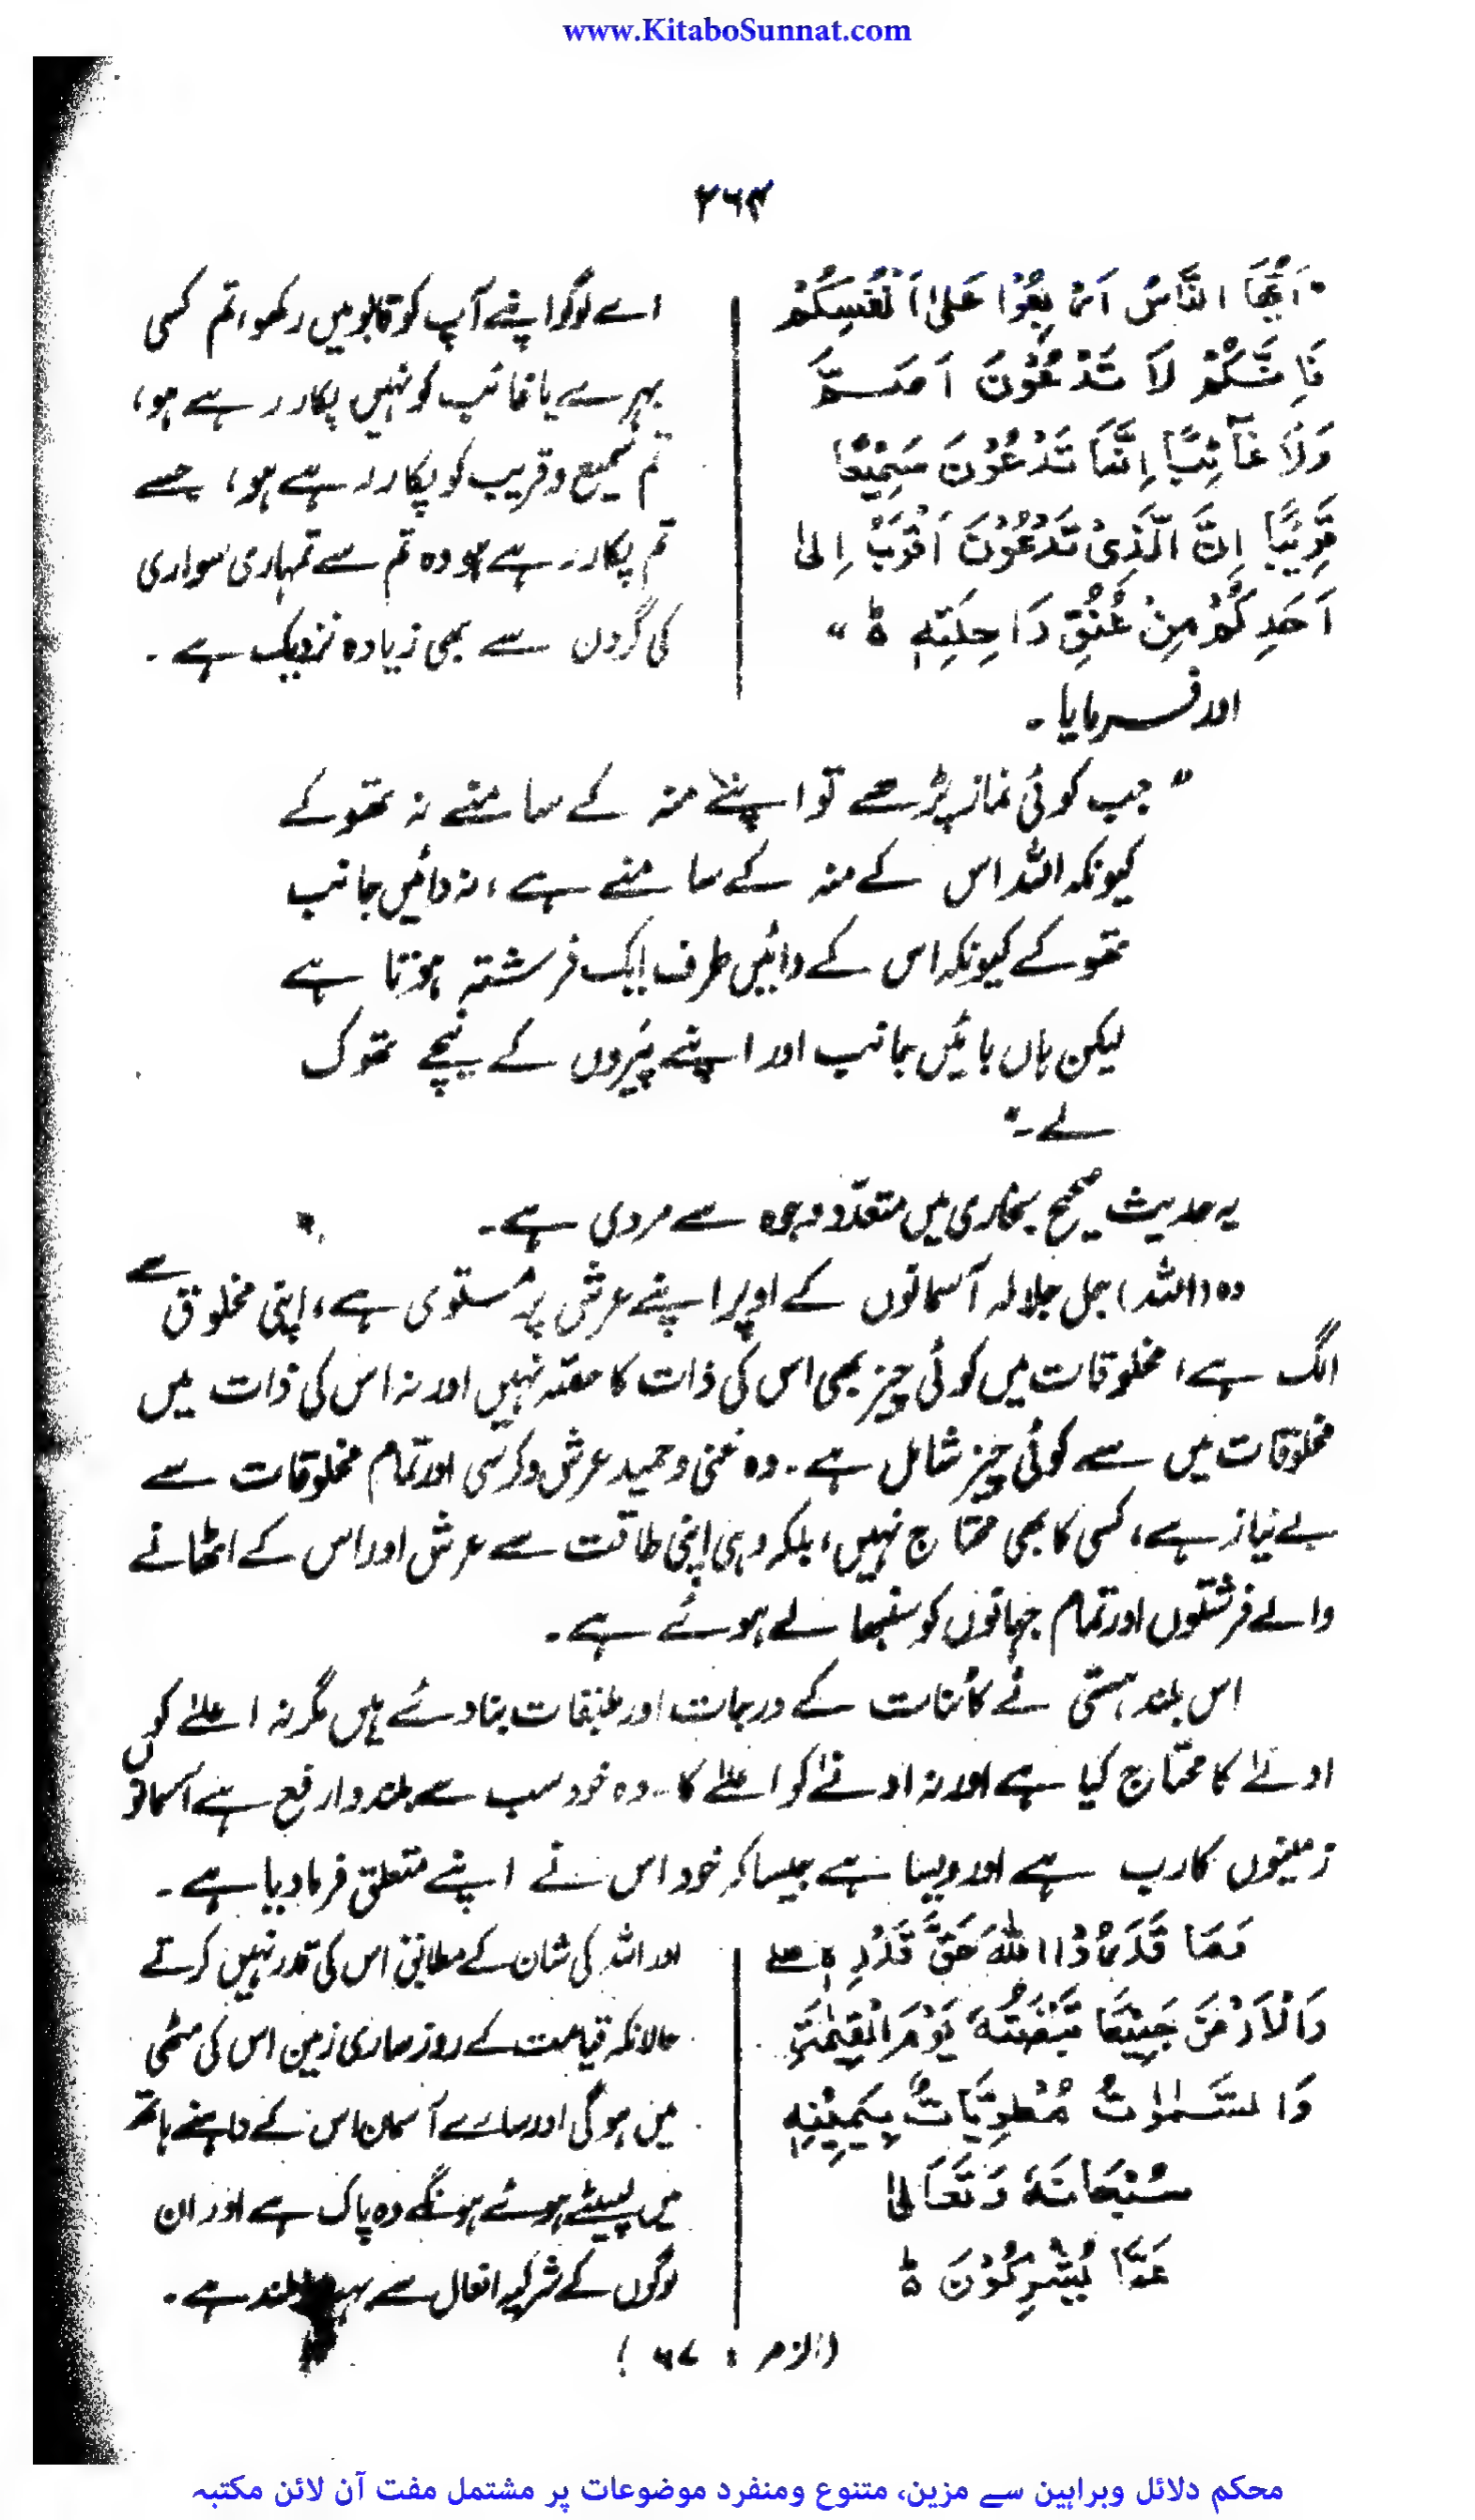 www.KitaboSunnat.com
۲۶۴
"اَیُّھَا النَّاسُ اَرْبِعُوْا عَلیٰ اَنْفُسِکُمْ
فَاِنَّکُمْ لَا تَدْعُوْنَ اَصَمَّ
وَلَا غَآئِبًا اِنَّمَا تَدْعُوْنَ سَمِیْعًا
قَرِیْبًا اِنَّ الَّذِیْ تَدْعُوْنَ اَقْرَبُ اِلیٰ
اَحَدِکُمْ مِنْ عُنُقِ رَاحِلَتِهٖ ہ"
اے لوگو اپنے آپ کو قابو میں رکھو، تم کسی
بہرے یا غائب کو نہیں پکار رہے ہو،
تم سمیع و قریب کو پکار رہے ہو، جسے
تم پکار رہے ہو وہ تم سے تمہاری سواری
کی گردن سے بھی زیادہ نزدیک ہے ۔
اور فرمایا ۔
" جب کوئی نماز پڑھے تو اپنے منہ کے سامنے نہ تھوکے
کیونکہ اللہ اس کے منہ کے سامنے ہے ، نہ دائیں جانب
تھوکے کیونکہ اس کے دائیں طرف ایک فرشتہ ہوتا ہے
لیکن ہاں بائیں جانب اور اپنے پیروں کے نیچے تھوک
لے ۔"
یہ حدیث صحیح بخاری میں متعدد وجوہ سے مروی ہے ۔
وہ (اللہ) جل جلالہ آسمانوں کے اوپر اپنے عرش پر مستوی ہے ، اپنی مخلوق سے
الگ ہے ، مخلوقات میں کوئی چیز بھی اس کی ذات کا حصّہ نہیں اور نہ اس کی ذات میں
مخلوقات میں سے کوئی چیز شامل ہے ۔ وہ غنی و حمید عرش و کرسی اور تمام مخلوقات سے
بے نیاز ہے ، کسی کا بھی محتاج نہیں ، بلکہ وہی اپنی طاقت سے عرش اور اس کے اٹھانے
والے فرشتوں اور تمام جہانوں کو سنبھالے ہوئے ہے ۔
اس بلند ہستی نے کائنات کے درجات اور طبقات بنا دئے ہیں مگر نہ اعلےٰ کو
ادنےٰ کا محتاج کیا ہے اور نہ ادنےٰ کو اعلےٰ کا ۔ وہ خود سب سے بلند و ارفع ہے آسمانوں
زمینوں کا رب ہے اور ویسا ہے جیسا کہ خود اس نے اپنے متعلق فرما دیا ہے ۔
وَمَا قَدَرُوْا اللّٰهَ حَقَّ قَدْرِهٖ صلے
وَالْاَرْضُ جَمِیْعًا قَبْضَتُهٗ یَوْمَ الْقِیٰمَةِ
وَالسَّمٰوٰتُ مَطْوِیَّاتٌ بِیَمِیْنِهٖ
سُبْحَانَهٗ وَتَعَالیٰ
عَمَّا یُشْرِکُوْنَ ہ
اور اللہ کی شان کے مطابق اس کی قدر نہیں کرتے
حالانکہ قیامت کے روز ساری زمین اس کی مٹھی
میں ہو گی اور سارے آسمان اس کے داہنے ہاتھ
میں لپیٹے ہوئے ہونگے وہ پاک ہے اور ان
لوگوں کے شرکیہ افعال سے بہت بلند ہے ۔
(الزمر : ۶۷ )
محکم دلائل وبراہین سے مزین، متنوع ومنفرد موضوعات پر مشتمل مفت آن لائن مکتبہ